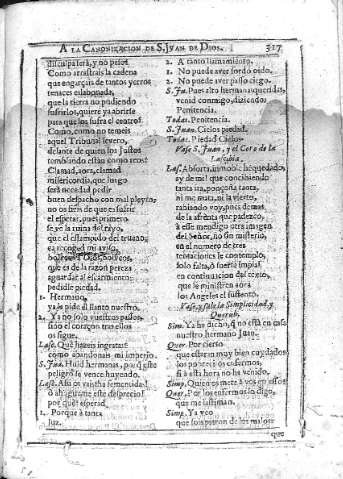 A LA CANONIZACION DE S. JVAN DE DIOS. 317
disculpa será, y no pesos
Como arrastrais la cadena
que engarçais de tantos yerros
tenaces eslabonada,
que la tierra no pudiendo
sufrirlos, quiere ya abrirse
para que los sufra el centro?
Como, como no temeis
aquel Tribunal severo,
delante de quien los justos
temblando están como reos?
Clamad, aora, clamad
misericordia, que luego
será necedad pedir
buen despacho con mal pleyto,
no os fieis de que es sufrir
el esperar, pues primero
se ve la ruina del rayo,
que el estampido del trueno;
que es de la razon pereza
aguardar al escarmiento:
pedidle piedad.
1. Hermano,
ya le pide el llanto nuestro.
2. Ya no solo vuestros passos,
sino el coraçon tras ellos
os sigue.
Lasc. Que hazeis ingratas?
como abandonais mi imperio.
S. Juan. Huid hermanas, porq̃ este
peligro se vence huyendo.
Lasc. Assi os vais ha femenidad!
por que esperad.
1. Porque à tanta
luz.
2. A tanto llamamiento.
1. No puede aver sordo oìdo.
2. No puede aver passo ciego.
S. Ju. Pues alto hermanas queridas,
venid conmigo, diziendo:
Penitencia.
Todas. Penitencia.
S. Juan. Cielos piedad.
Todas. Piedad Cielos.
Vase S. Juan, y el Coro de la
Lascibia.
Lasc. Absorta, inmobil he quedado,
ay de mi! que concibiendo
tanta ira, ponçoña tanta,
ni me mata, ni la vierto,
rabiando voy, pues demas
de la afrenta que padezco,
à esse mendigo otra imagen
del Señor, no sin misterio,
en el numero de tres
tentaciones le contemplo,
solo falta, ò fuerte impia!
en continuacion del cuento,
que le ministren aora
los Angeles el sustento.
Vase, y sale la Simplicidad, y
Querub.
Sim. Ya he dicho, q̃ no está en casa
nuestro hermano Juan.
Quer. Por cierso
que estaran muy bien cuydados
los pobres, si enfermos,
si à esta hora no ha venido.
Simp. Quien os mete à vos en esso?
Quer. Por los enfermos lo digo,
que me lastiman.
Simp. Ya veo
que sois patron de los malos
que